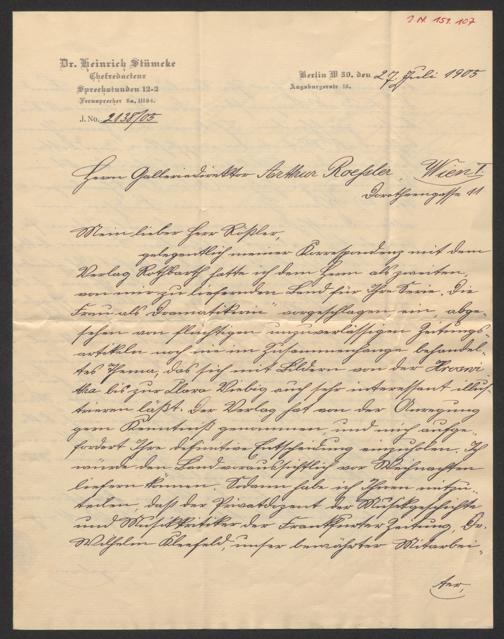 J.N. 151.107
Dr. Heinrich Stümcke
Chefredacteur
Sprechstunden 12-2
Fernsprecher 6a, 11184.
J. No. 2138/05
Berlin W 50, den 27. Juli 1905
Augsburgerstr.
Herrn Galleriedirektor Arthur Roeßler, Wien I
Dorotheengasse 11
Mein lieber Herr Roeßler,
gelegentlich meiner Korrespondenz mit dem
Verlag Rothbarth hatte ich dem Herrn als zweiten,
von mir zu liefernden Band für Ihre Serie „Die
Frau als Dramatikerin" vorgeschlagen, ein, abge-
sehen von flüchtigen unzuverlässigen Zeitungs-
artikeln noch nie im Zusammenhange behandel-
tes Thema, das sich mit Bildern von der Hroswi-
tha bis zur Clara Viebig auch sehr interessant illust-
rieren läßt. Der Verlag hat von der Anregung
gern Kenntniß genommen, und mich aufge-
fordert Ihre definitive Entscheidung einzuholen. Ich
würde den Band voraussichtlich vor Weihnachten
liefern können. Sodann habe ich Ihnen mitzu-
teilen, daß der Privatdozent der Musikgeschichte
und Musikkritiker der Frankfurter Zeitung, Dr.
Wilhelm Kleefeld, unser bewährter Mitarbei-
ter,